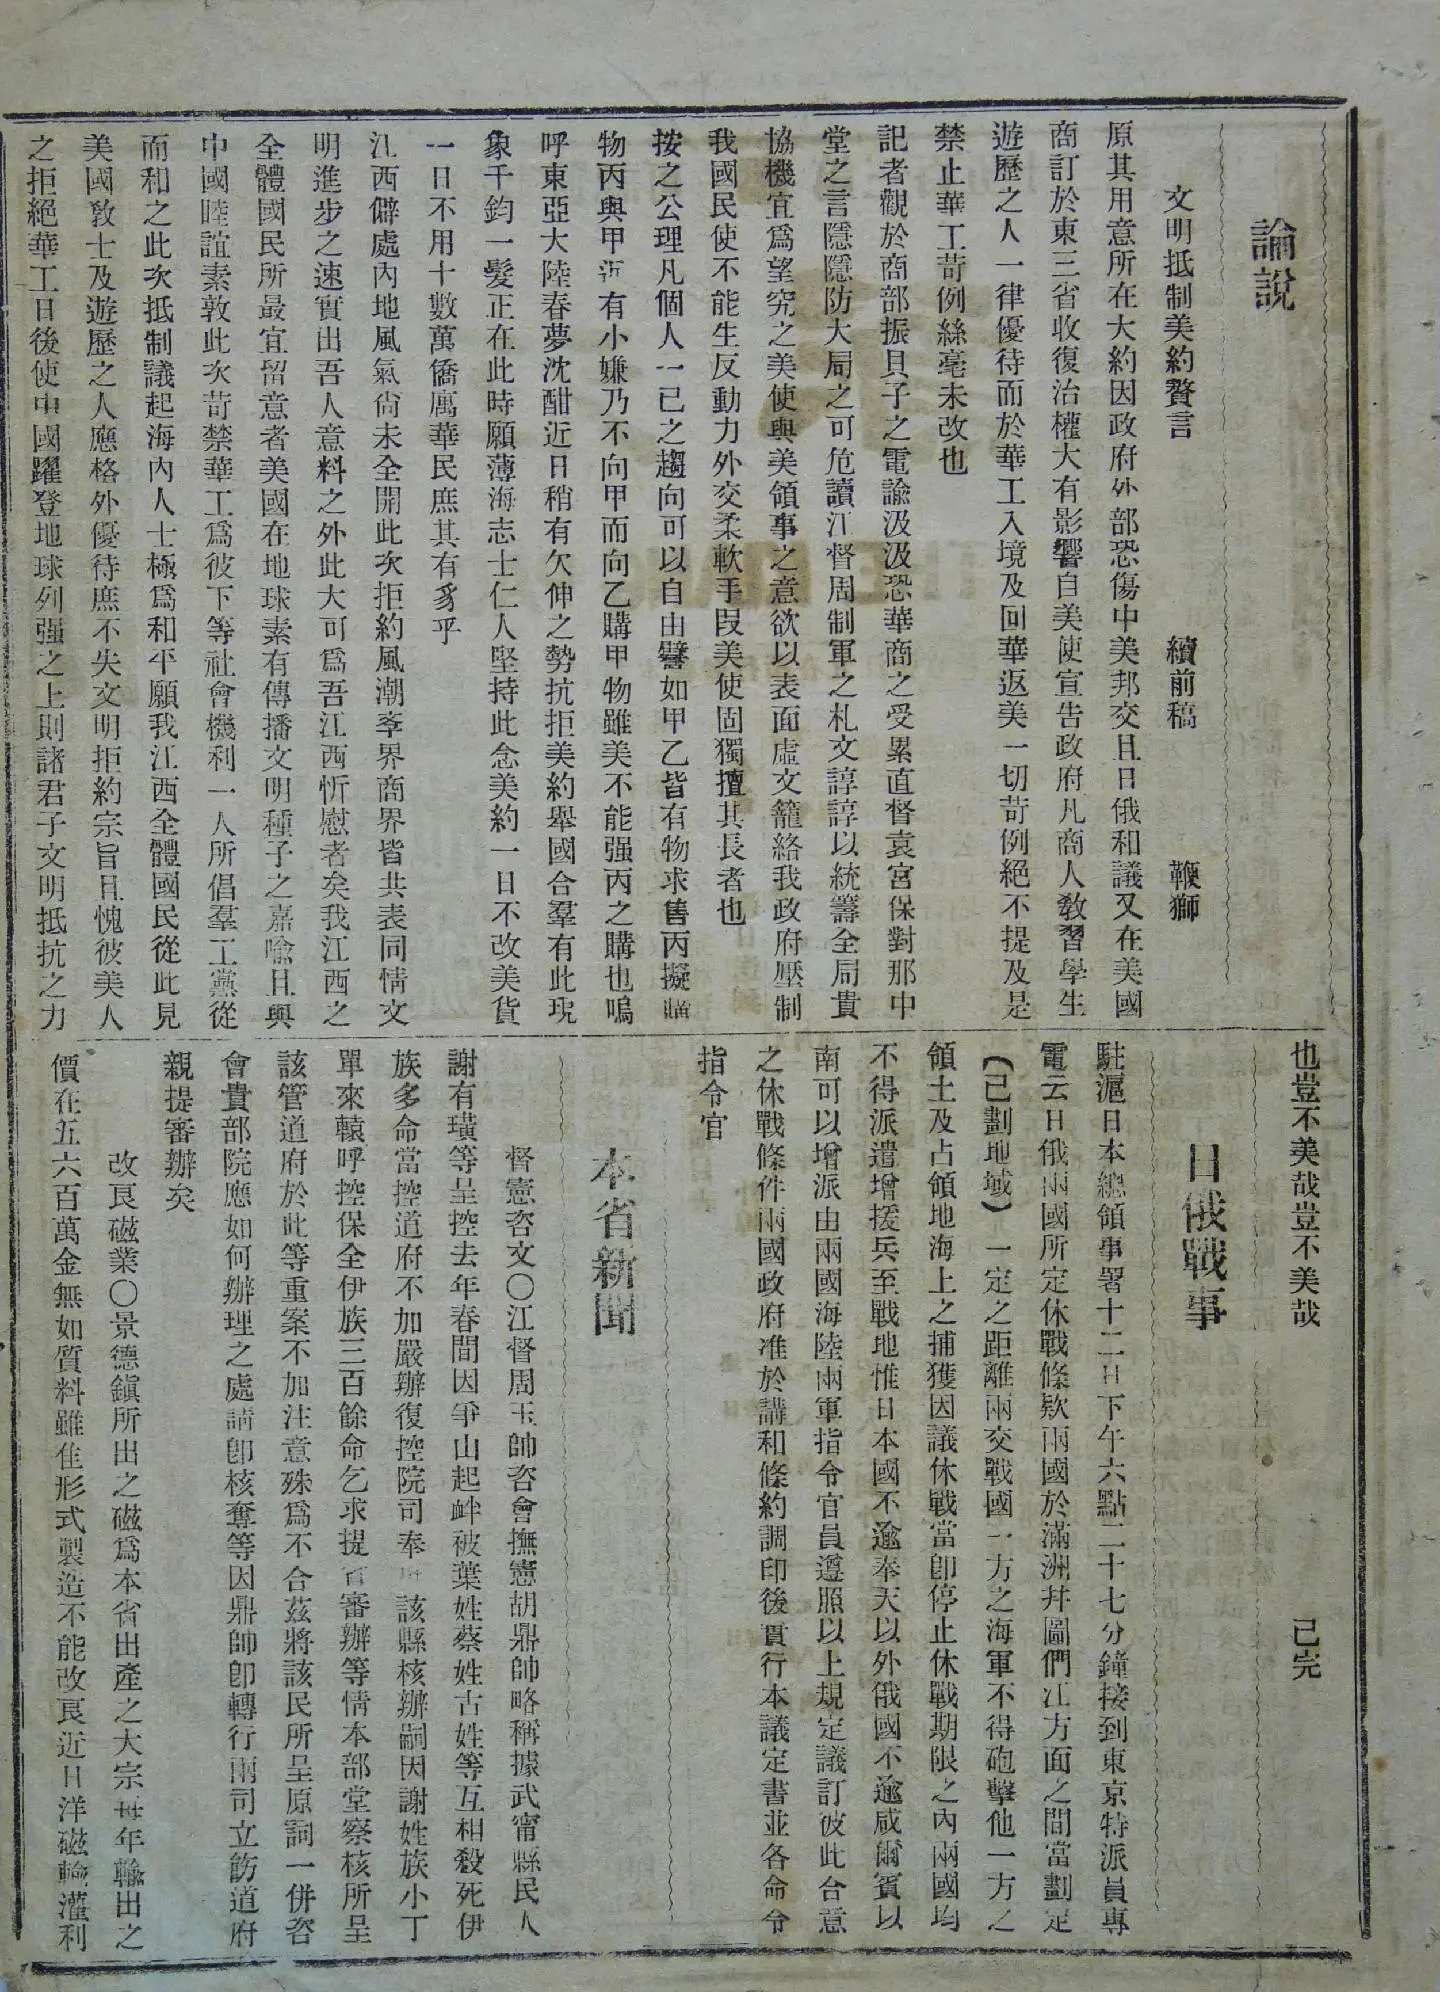 論說
文明抵制美約贅言　續前稿　鞭獅
原其用意所在大約因政府外部恐傷中美邦交且日俄和議又在美國
商訂於東三省收復治權大有影響自美使宣告政府凡商人教習學生
遊歷之人一律優待而於華工入境及回華返美一切苛例絕不提及是
禁止華工苛例絲毫未改也
記者觀於商部振貝子之電諭汲汲恐華商之受累直督袁宮保對那中
堂之言隱隱防大局之可危讀江督周制軍之札文諄諄以統籌全局貴
協機宜爲望究之美使與美領事之意欲以表面虛文籠絡我政府壓制
我國民使不能生反動力外交柔軟手段美使固獨擅其長者也
按之公理凡個人一己之趨向可以自由譬如甲乙皆有物求售丙擬購
物丙與甲洒有小嫌乃不向甲而向乙購甲物雖美不能强丙之購也嗚
呼東亞大陸春夢沈酣近日稍有欠伸之勢抗拒美約舉國合羣有此現
象千鈞一髮正在此時願薄海志士仁人堅持此念美約一日不改美貨
一日不用十數萬僑厲華民庶其有豸乎
江西僻處內地風氣尙未全開此次拒約風潮學界商界皆共表同情文
明進步之速實出吾人意料之外此大可爲吾江西忻慰者矣我江西之
全體國民所最宜留意者美國在地球素有傳播文明種子之嘉喩且與
中國睦誼素敦此次苛禁華工爲彼下等社會機利一人所倡羣工黨從
而和之此次抵制議起海內人士極爲和平願我江西全體國民從此見
美國敎士及遊歷之人應格外優待庶不失文明拒約宗旨且愧彼美人
之拒絕華工日後使中國躍登地球列强之上則諸君子文明抵抗之力
也豈不美哉豈不美哉　已完
日俄戰事
駐滬日本總領事署十二日下午六點二十七分鐘接到東京特派員專
電云日俄兩國所定休戰條欵兩國於滿洲幷圖們江方面之間當劃定
(已劃地域)一定之距離兩交戰國一方之海軍不得砲擊他一方之
領土及占領地海上之捕獲因議休戰當卽停止休戰期限之內兩國均
不得派遣增援兵至戰地惟日本國不逾奉天以外俄國不逾咸爾賓以
南可以增派由兩國海陸兩軍指令官員遵照以上規定議訂彼此合意
之休戰條件兩國政府准於講和條約調印後實行本議定書並各命令
指令官
本省新聞
督憲咨文〇江督周玉帥咨會撫憲胡鼎帥略稱據武甯縣民人
謝有璜等呈控去年春間因爭山起衅被葉姓蔡姓古姓等互相殺死伊
族多命當控道府不加嚴辦復控院司奉 該縣核辦嗣因謝姓族小丁
單來轅呼控保全伊族三百餘命乞求提省審辦等情本部堂察核所呈
該管道府於此等重案不加注意殊爲不合茲將該民所呈原詞一併咨
會貴部院應如何辦理之處請卽核奪等因鼎帥卽轉行兩司立飭道府
親提審辦矣
改良磁業〇景德鎭所出之磁爲本省出產之大宗每年輸出之
價在五六百萬金無如質料雖佳形式製造不能改良近日洋磁輸灌利